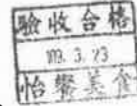 驗收合格
109. 3. 23
怡馨美食